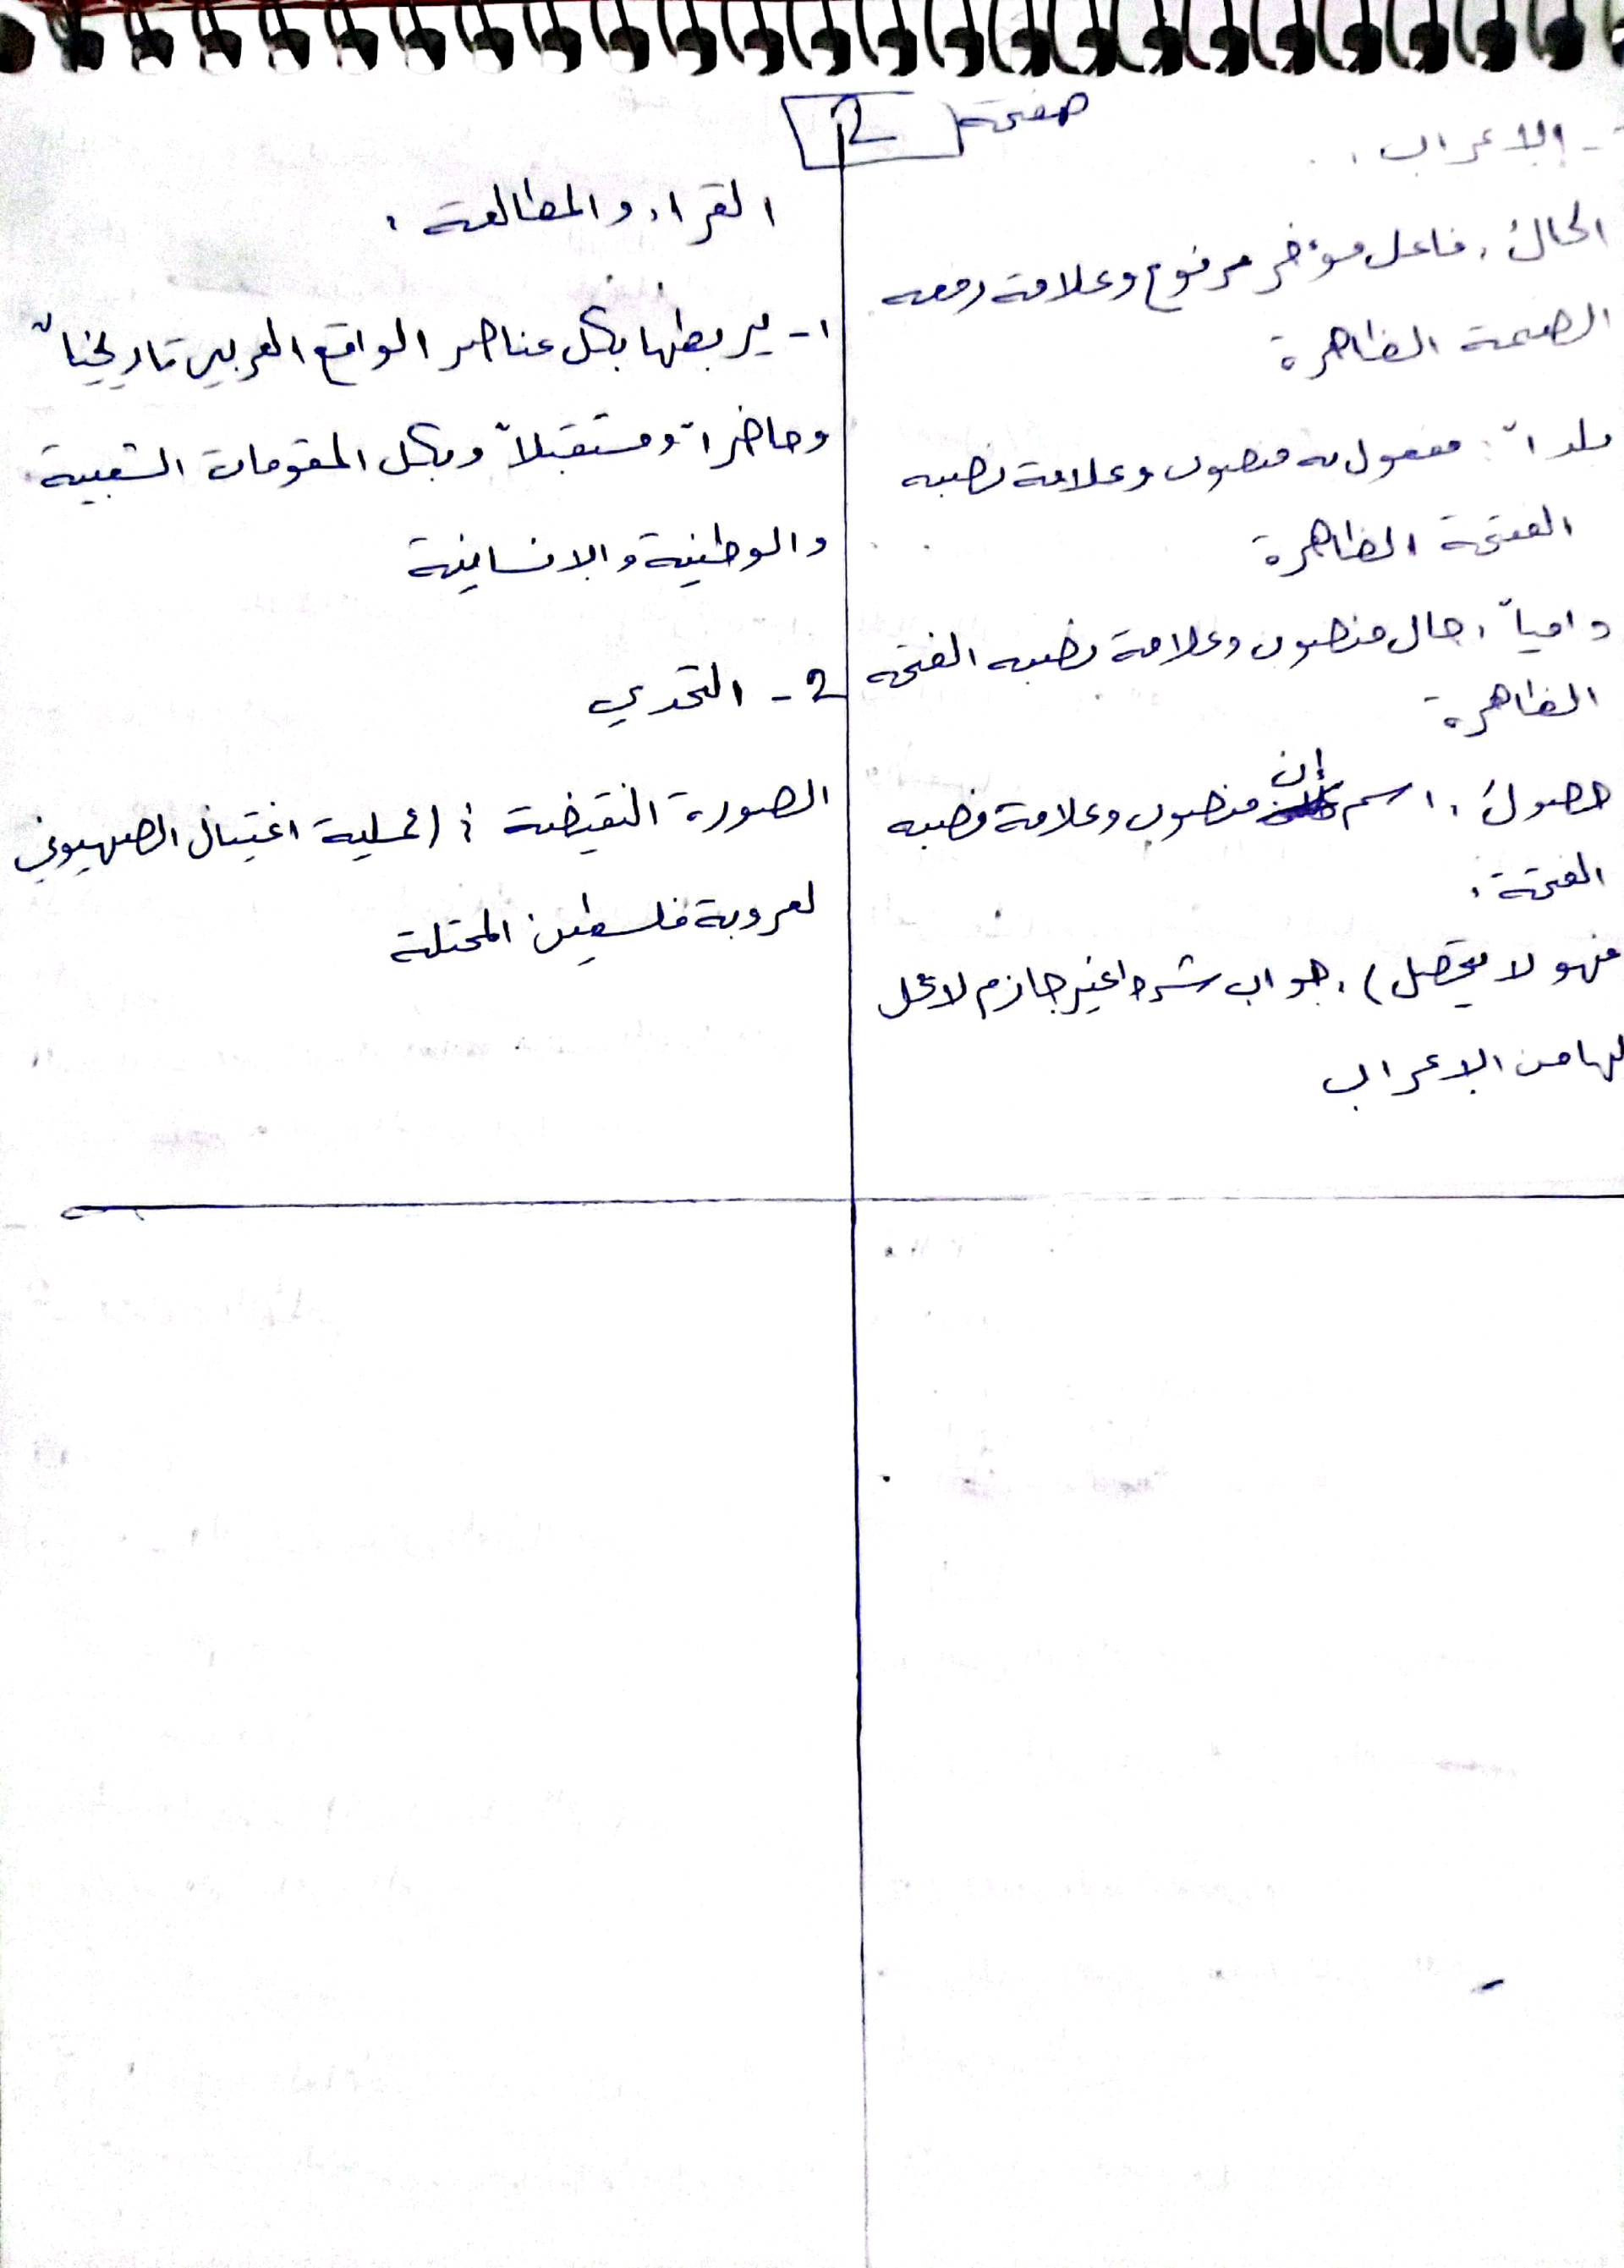 صفحة 2
- الاعراب:
الحالُ: فاعل مؤخر مرفوع وعلامة رفعه
الضمة الظاهرة
بلداً: مفعول به منصوب وعلامة نصبه
الفتحة الظاهرة
دامياً: حال منصوب وعلامة نصبه الفتحة
الظاهرة
حصولَ: اسم إن منصوب وعلامة نصبه
الفتحة.
فهو لا يحصل): جواب شرط غير جازم لا محل
لها من الاعراب
القراءة والمطالعة:
1- يربطها بكل عناصر الواقع العربي تاريخياً
وحاضراً ومستقبلاً وبكل المقومات الشعبية
والوطنية والانسانية
2- التحدي
الصورة النقيضة: (عملية اغتيال الصهيوني
لعروبة فلسطين المحتلة